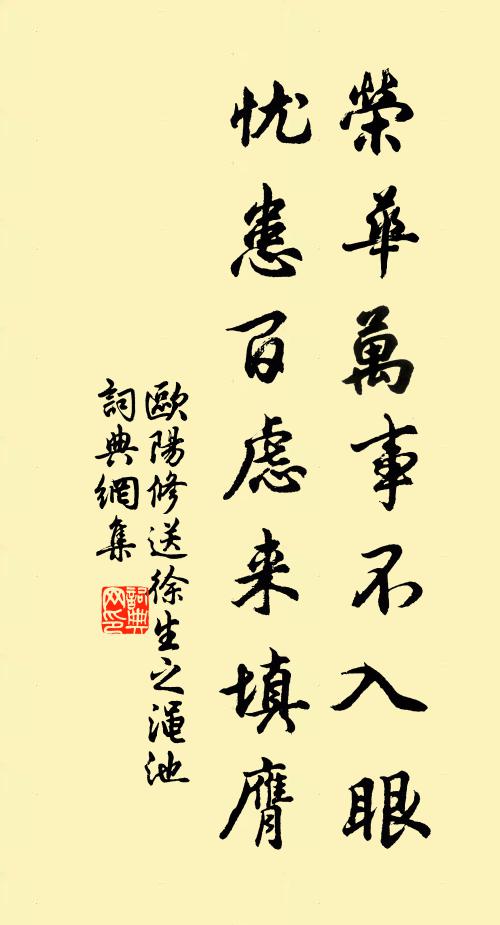 榮華萬事不入眼
忧患百慮来填膺
歐陽修送徐生之澠池
詞典網集
詞典网印